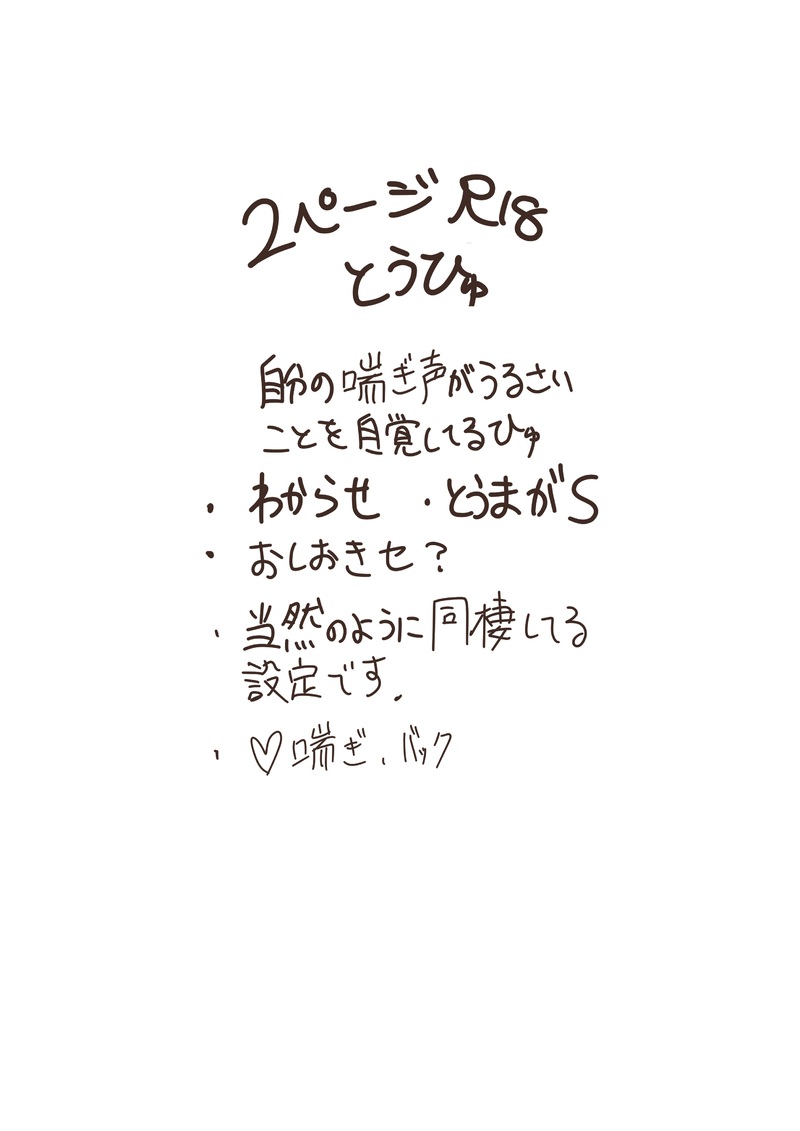 2ページ R18
とうひゅ
自分の喘ぎ声がうるさい
ことを自覚してるひゅ
・わからせ ・とうまがS
・おしおきセ？
・当然のように同棲してる
設定です.
・♡喘ぎ、バック